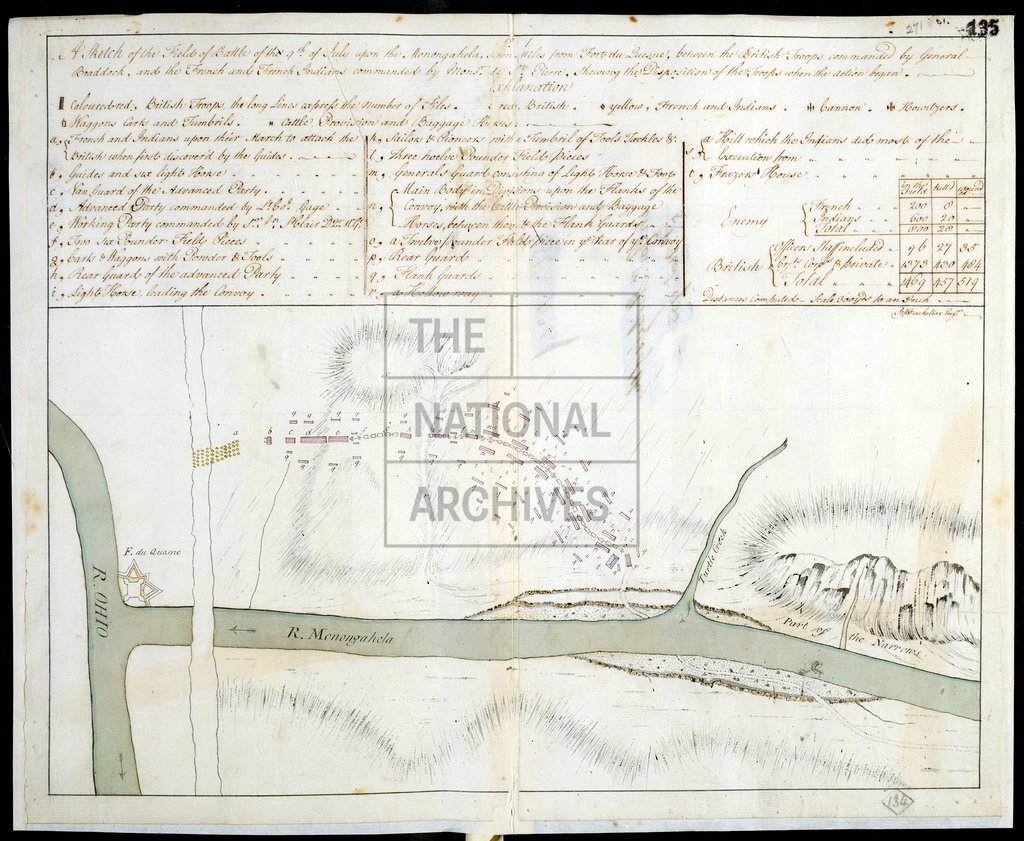 135
271
A Sketch of the Field of Battle of the 9th of July upon the Monongahela, miles from Fort du Quesne, between the British Troops commanded by General
Braddock, and the French and French Indians commanded by Monsr. de St. Pierre, shewing the Disposition of the Troops when the action began.
Explanation
coloured red, British Troops, the long Lines express the Number of Files. red, British. yellow, French and Indians. Cannon. Howitzers.
Waggons Carts and Tumbrils. Cattle Provision and Baggage Horses.
a, French and Indians upon their March to attack the
British when first discover'd by the Guides.
b, Guides and six light Horse
c, Van Guard of the Advanced Party.
d, Advanced Party commanded by Lt. Col. Gage
e, Working Party commanded by Sr. Jn. St. Clair
f, Two Six Pounder Field Pieces
g, Carts & Waggons with Powder & Tools
h, Rear Guard of the advanced Party
i, Light Horse, leading the Convoy.
k, Sailors & Pioneers with a Tumbril of Tools Tackles &c.
l, Three twelve Pounder Field Pieces
m, Generals Guard consisting of Light Horse & Foot
n, Main Body in Divisions upon the Flanks of the
Convoy, with the Cattle Provision and Baggage
Horses, between them & the Flank Guards
o, a Twelve Pounder Field Piece in ye. Rear of ye. Convoy
p, Rear Guard
q, Flank Guards
r, a Hollow way
s, a Hill which the Indians did most of the
Execution from
t, Frazers House
in the Field kill'd wound
Enemy
French 200 8
Indians 600 20
Total 800 28
British
Officers Staff included 96 27 35
Serjts. Corpls. & private 1373 430 484
Total 1469 457 519
Distances computed. Scale 300 yds to an Inch
THE
NATIONAL
ARCHIVES
a b c d e f
q q q q q q
F. du Quesne
R. OHIO
R. Monongahela
Turtle Creek
Part of the Narrows
134